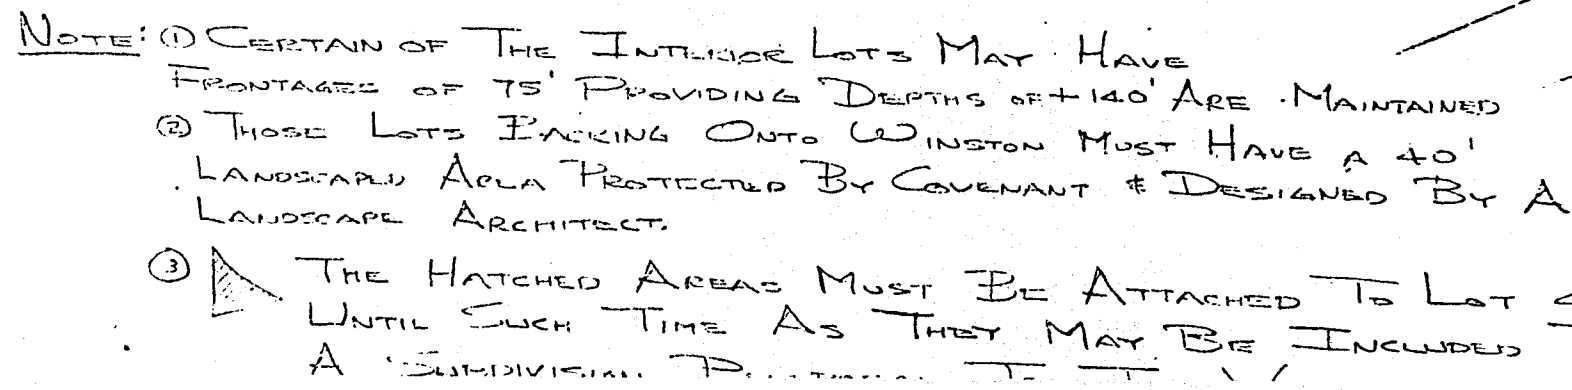 NOTE: ① CERTAIN OF THE INTERIOR LOTS MAY HAVE
FRONTAGES OF 75' PROVIDING DEPTHS OF +140' ARE MAINTAINED
② THOSE LOTS BACKING ONTO WINSTON MUST HAVE A 40'
LANDSCAPED AREA PROTECTED BY COVENANT & DESIGNED BY A
LANDSCAPE ARCHITECT.
③ THE HATCHED AREAS MUST BE ATTACHED TO LOT
UNTIL SUCH TIME AS THEY MAY BE INCLUDED
A SUBDIVISION